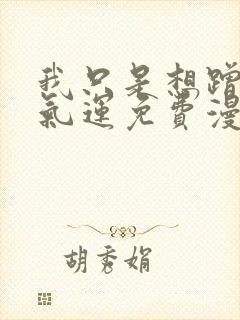 我只是想蹭
氣運免費漫
胡秀娟